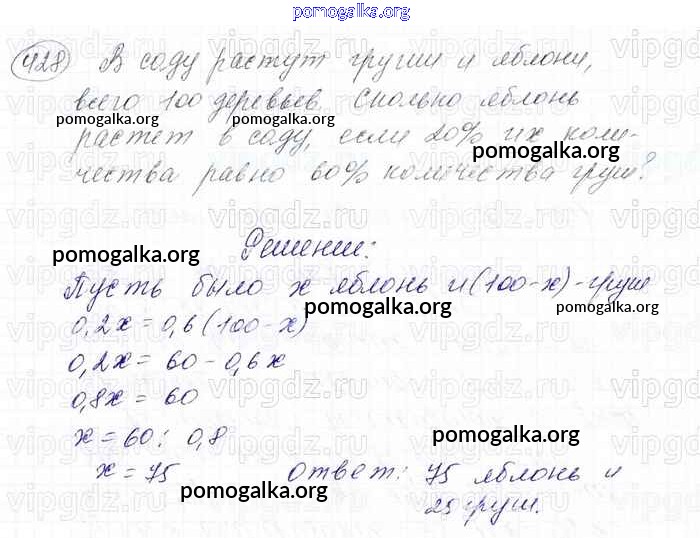 pomogalka.org
428 В саду растут груши и яблони,
всего 100 деревьев. Сколько яблонь
pomogalka.org pomogalka.org
растет в саду, если 20% их коли-
pomogalka.org
чества равно 60% количества груш?
Решение:
pomogalka.org
Пусть было x яблонь и (100-x)-груш
pomogalka.org pomogalka.org
0,2x = 0,6(100-x)
0,2x = 60 - 0,6x
0,8x = 60
x = 60 : 0,8
pomogalka.org
x = 75 Ответ: 75 яблонь и
pomogalka.org
25 груш.
pomogalka.org